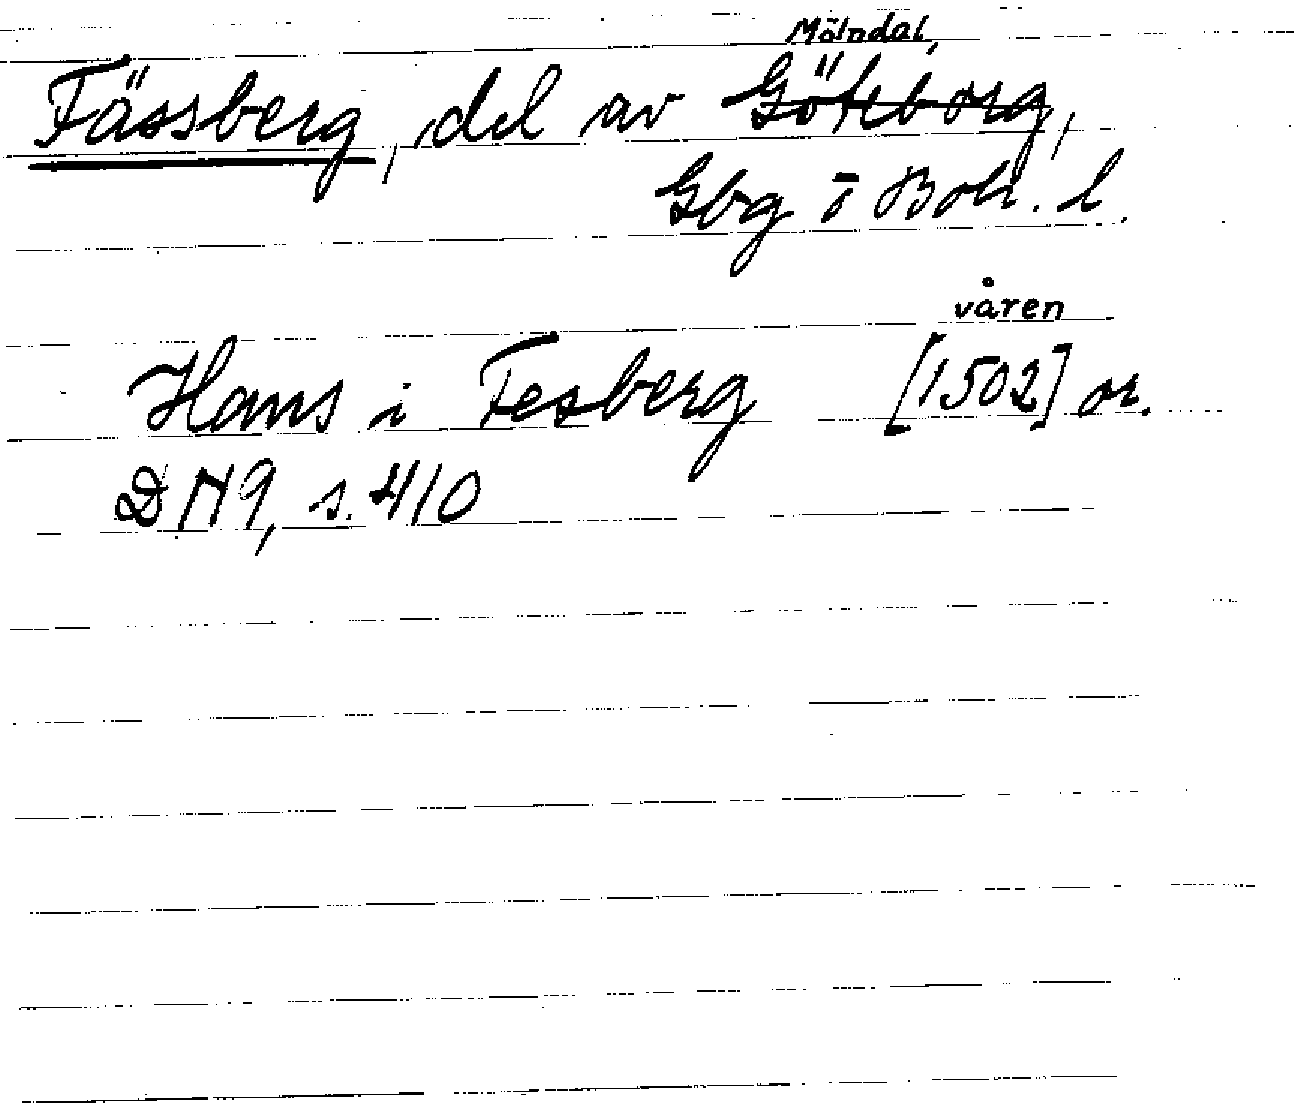 Mölndal,
Fässberg, del av Göteborg,
Gbg i Boh. l.
våren
Hans i Fesberg [1502] or.
DN 9, s. 410